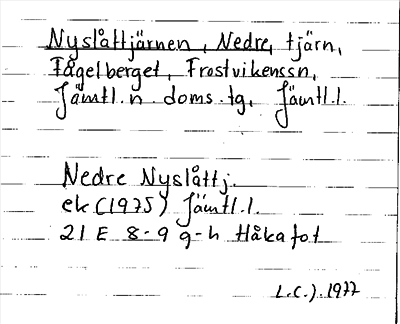 Nyslåttjärnen, Nedre, tjärn,
Fågelberget, Frostvikenssn,
Jämtl.n. doms.tg, Jämtl.l.
Nedre Nyslåttj.
ek (1975) Jämtl.l.
21 E 8-9 g-h Håkafot
L.C.J. 1977